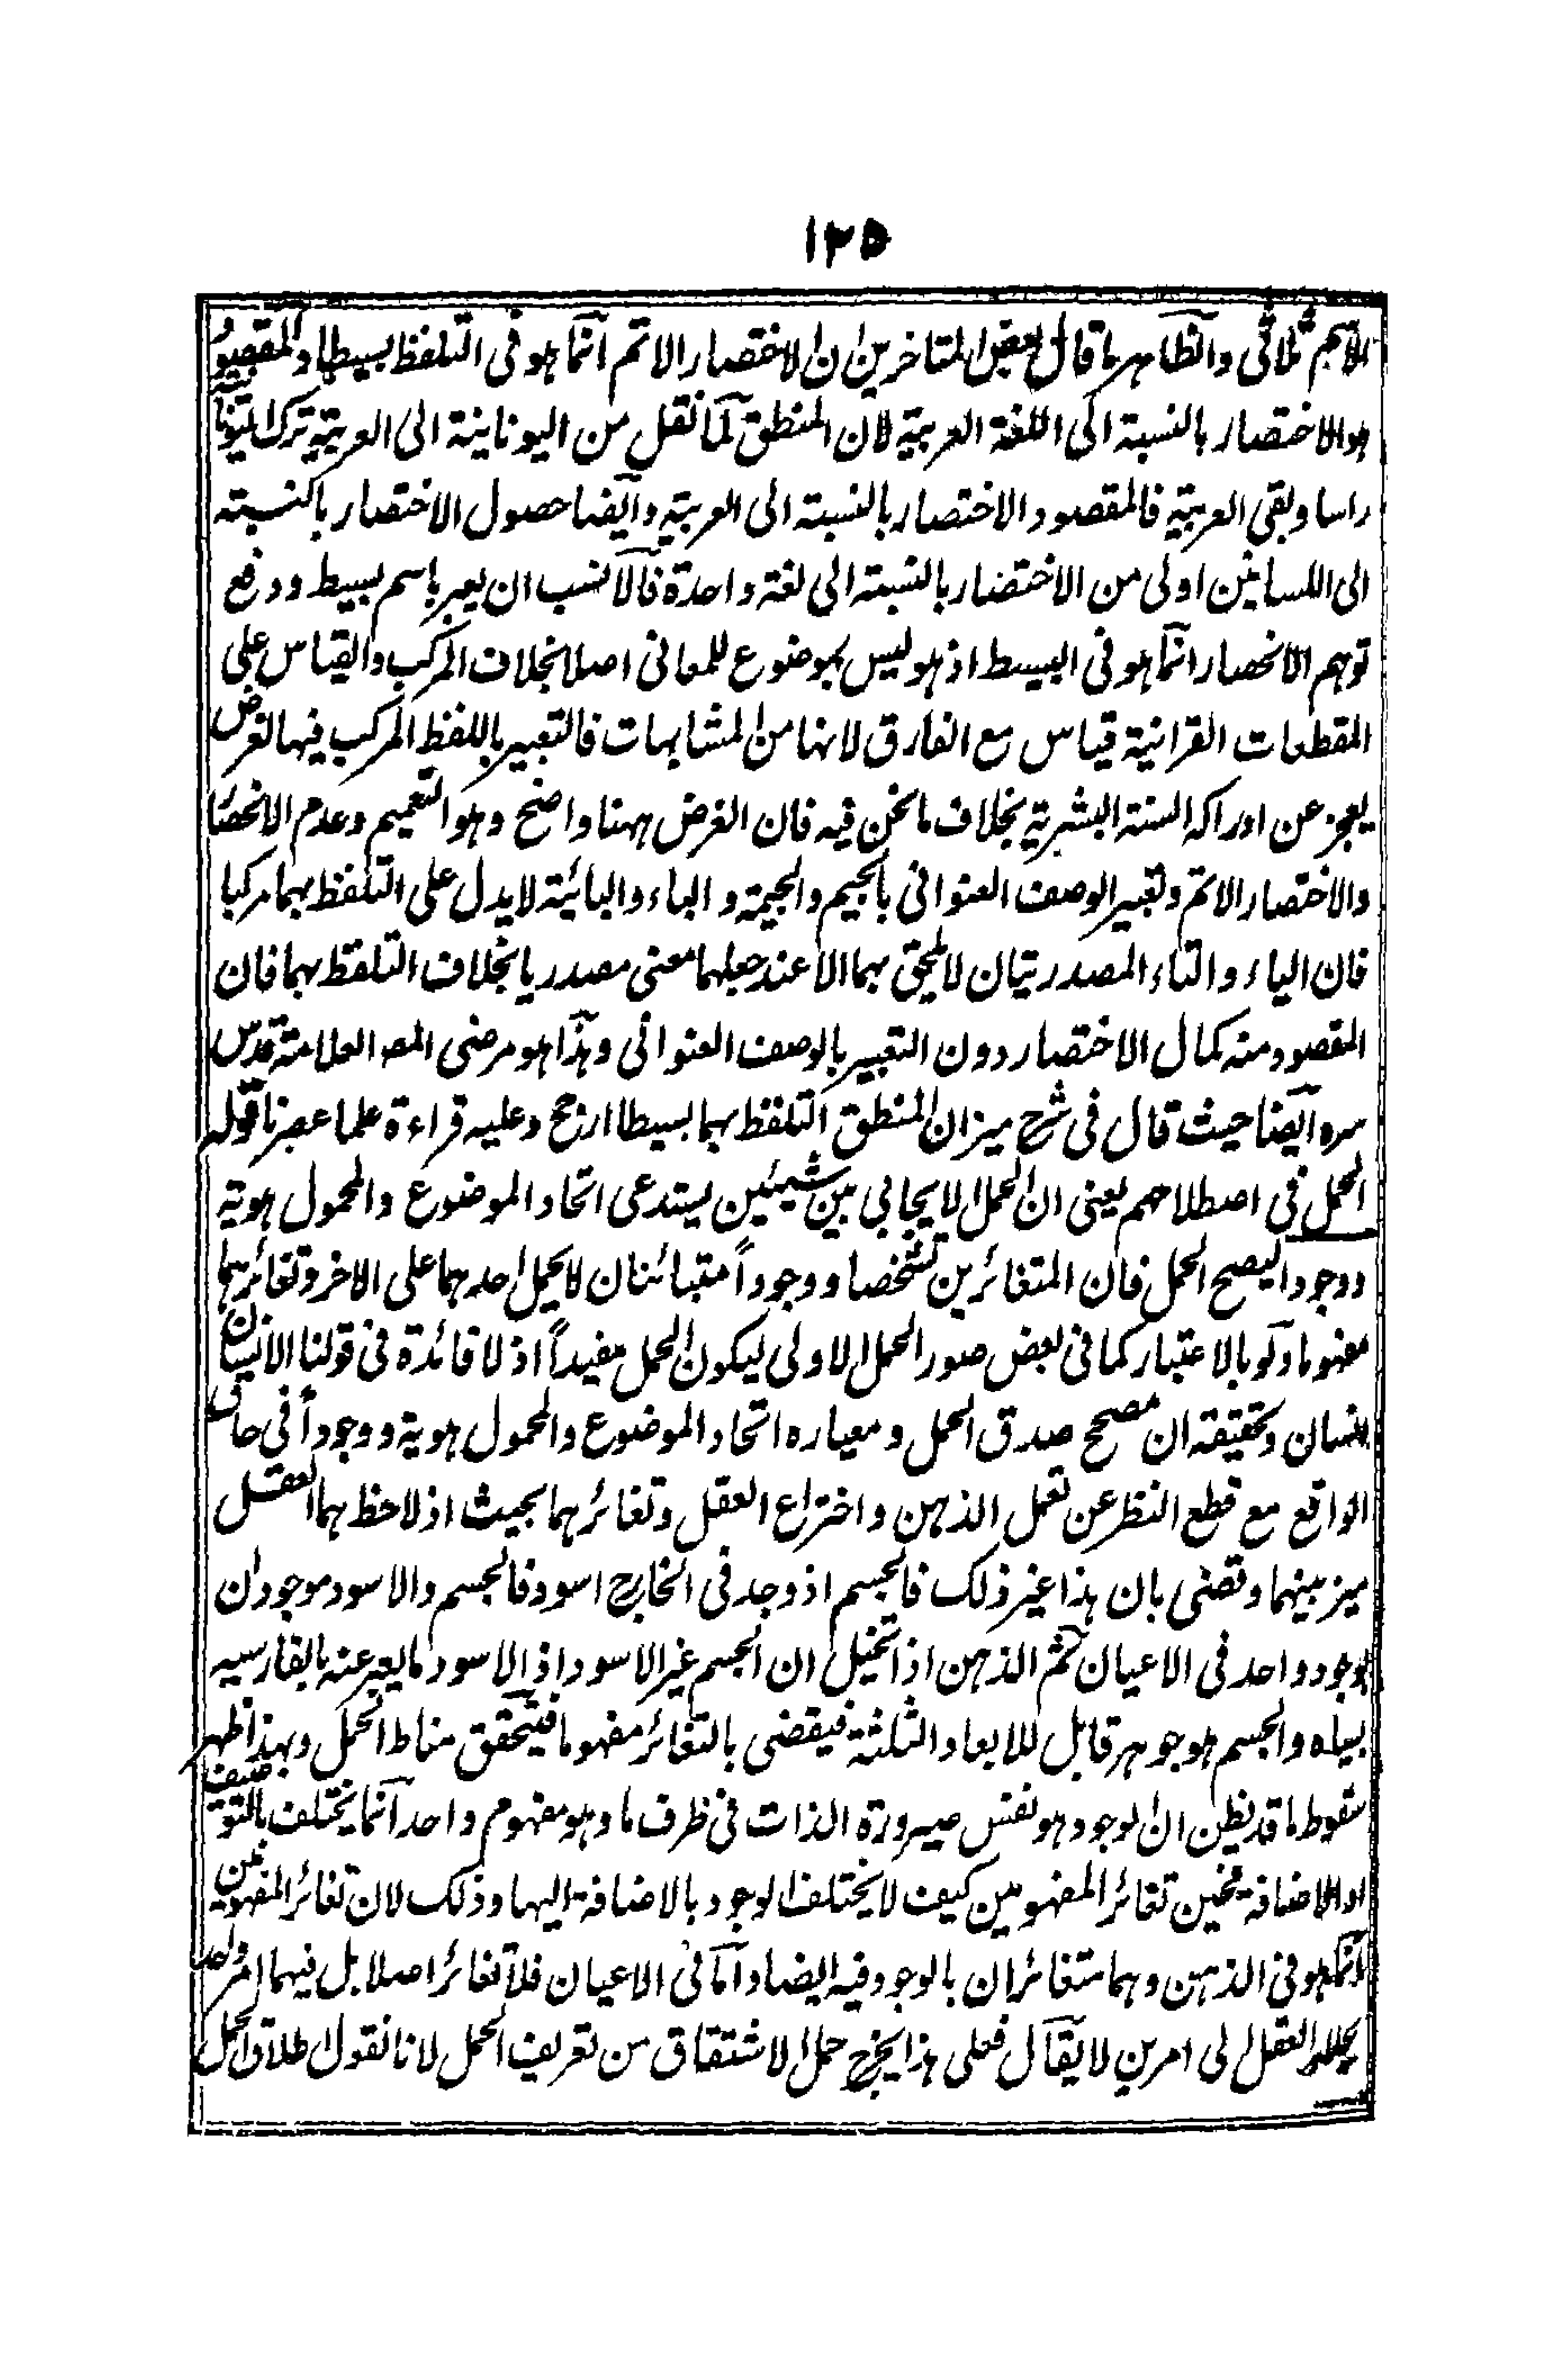 ١٢٥
الاسم ثلاثى والظاهر ما قال بعض المتاخرين ان الاختصار الاتم انما هو فى التلفظ بسيطا والمقصود
هو الاختصار بالنسبة الى اللغة العربية لان المنطق لما نقل من اليونانية الى العربية ترك اليونانية
راسا وبقى العربية فالمقصود الاختصار بالنسبة الى العربية وايضا حصول الاختصار بالنسبة
الى اللسانين اولى من الاختصار بالنسبة الى لغة واحدة فالانسب ان يعبر باسم بسيط ودفع
توهم الانحصار انما هو فى البسيط اذ هو ليس بموضوع للمعانى اصلا بخلاف المركب والقياس على
المقطعات القرانية قياس مع الفارق لانها من المشابهات فالتعبير باللفظ المركب فيها لغرض
يعجز عن ادراكه السنة البشرية بخلاف ما نحن فيه فان الغرض ههنا واضح وهو التعميم وعدم الانحصار
والاختصار الاتم وتعبير الوصف العنوانى بالجيم والجيمية و الباء والبائية لا يدل على التلفظ بهما مركبا
فان الياء و التاء المصدريتان لا يلحق بهما الا عند جعلهما معنى مصدريا بخلاف التلفظ بهما فان
المقصود منه كمال الاختصار دون التعبير بالوصف العنوانى وهذا هو مرضى المص العلامة قدس
سره ايضا حيث قال فى شرح ميزان المنطق التلفظ بهما بسيطا ارجح وعليه قراءة علماء عصرنا قوله
الحمل فى اصطلاحهم يعنى ان الحمل الايجابى بين شيئين يستدعى اتحاد الموضوع والمحمول هوية
ووجودا ليصح الحمل فان المتغائرين تشخصا ووجوداً متبائنان لا يحمل احدهما على الاخر وتغائرهما
مفهوما ولو بالاعتبار كما فى بعض صور الحمل الاولى ليكون الحمل مفيداً اذ لا فائدة فى قولنا الانسان
انسان وتحقيقه ان مصحح صدق الحمل و معياره اتحاد الموضوع والمحمول هوية ووجوداً فى حاق
الواقع مع قطع النظر عن تعمل الذهن و اختراع العقل وتغائرهما بحيث اذ لاحظ هما العقل
ميز بينهما وقضى بان هذا غير ذلك فالجسم اذ وجد فى الخارج اسود فالجسم والاسود موجودان
بوجود واحد فى الاعيان ثم الذهن اذا تخيل ان الجسم غير الاسود اذ الاسود ما يعبر عنه بالفارسيه
بسياه والجسم هو جوهر قابل للابعاد الثلثة فيقضى بالتغائر مفهوما فيتحقق مناط الحمل وبهذا ظهر
سقوط ما قد يظن ان الوجود هو نفس صيرورة الذات فى ظرف ما وهو مفهوم واحد انما يختلف بالتوصيف
او الاضافة فحين تغائر المفهومين كيف لا يختلف الوجود بالاضافة اليها وذلك لان تغائر المفهومين
انما هو فى الذهن وهما متغائران بالوجود فيه ايضا واما فى الاعيان فلا تغائر اصلا بل فيهما امر واحد
يحلله العقل الى امرين لا يقال فعلى هذا يخرج حمل الاشتقاق من تعريف الحمل لانا نقول اطلاق الحمل